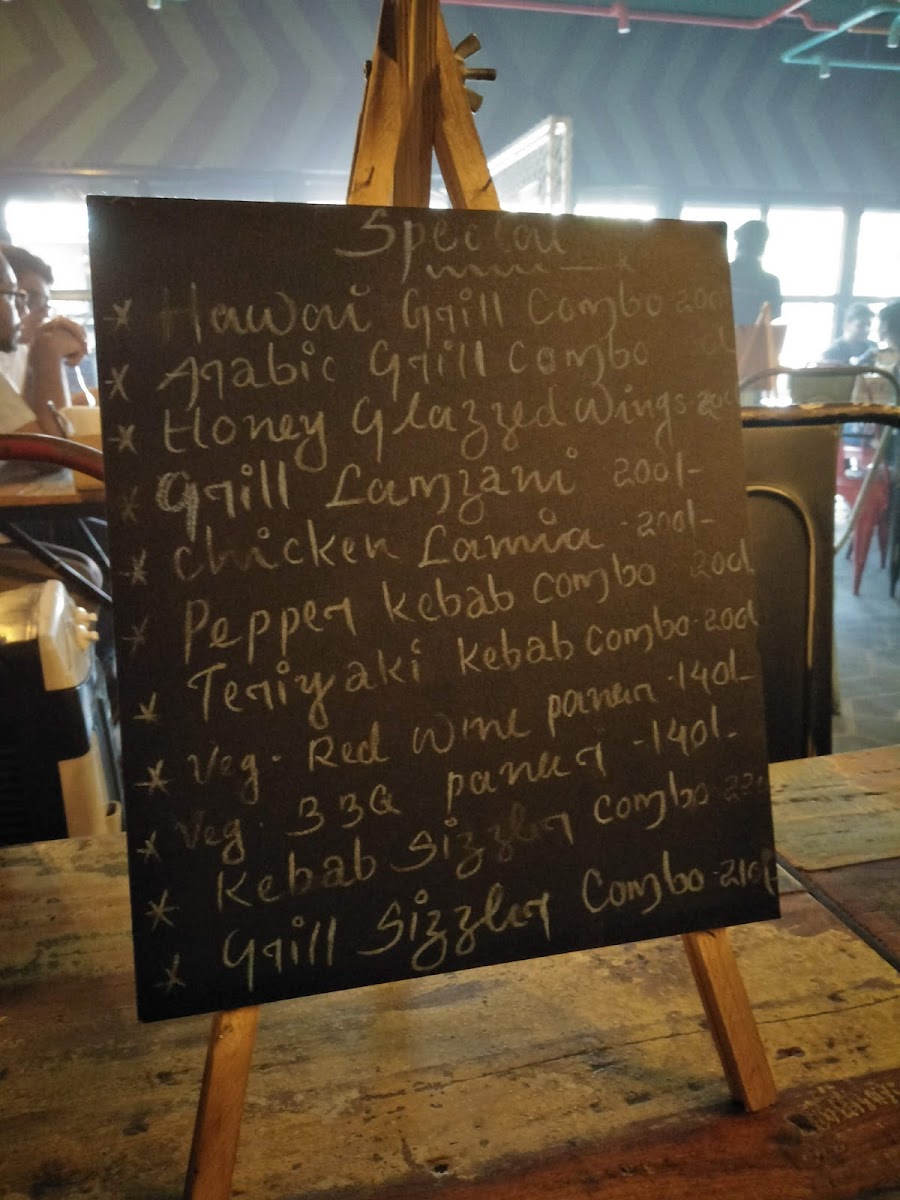 Special
* Hawai Grill Combo 200
* Arabic Grill Combo
* Honey Glazzed Wings 200
* Grill Lamzani 200/-
* Chicken Lamia - 200/-
* Pepper Kebab Combo 200/
* Teriyaki Kebab Combo - 200/
* Veg. Red Wine paneer - 140/-
* Veg. BBQ paneer - 140/-
* Kebab Sizzler Combo
* Grill Sizzler Combo - 210/-